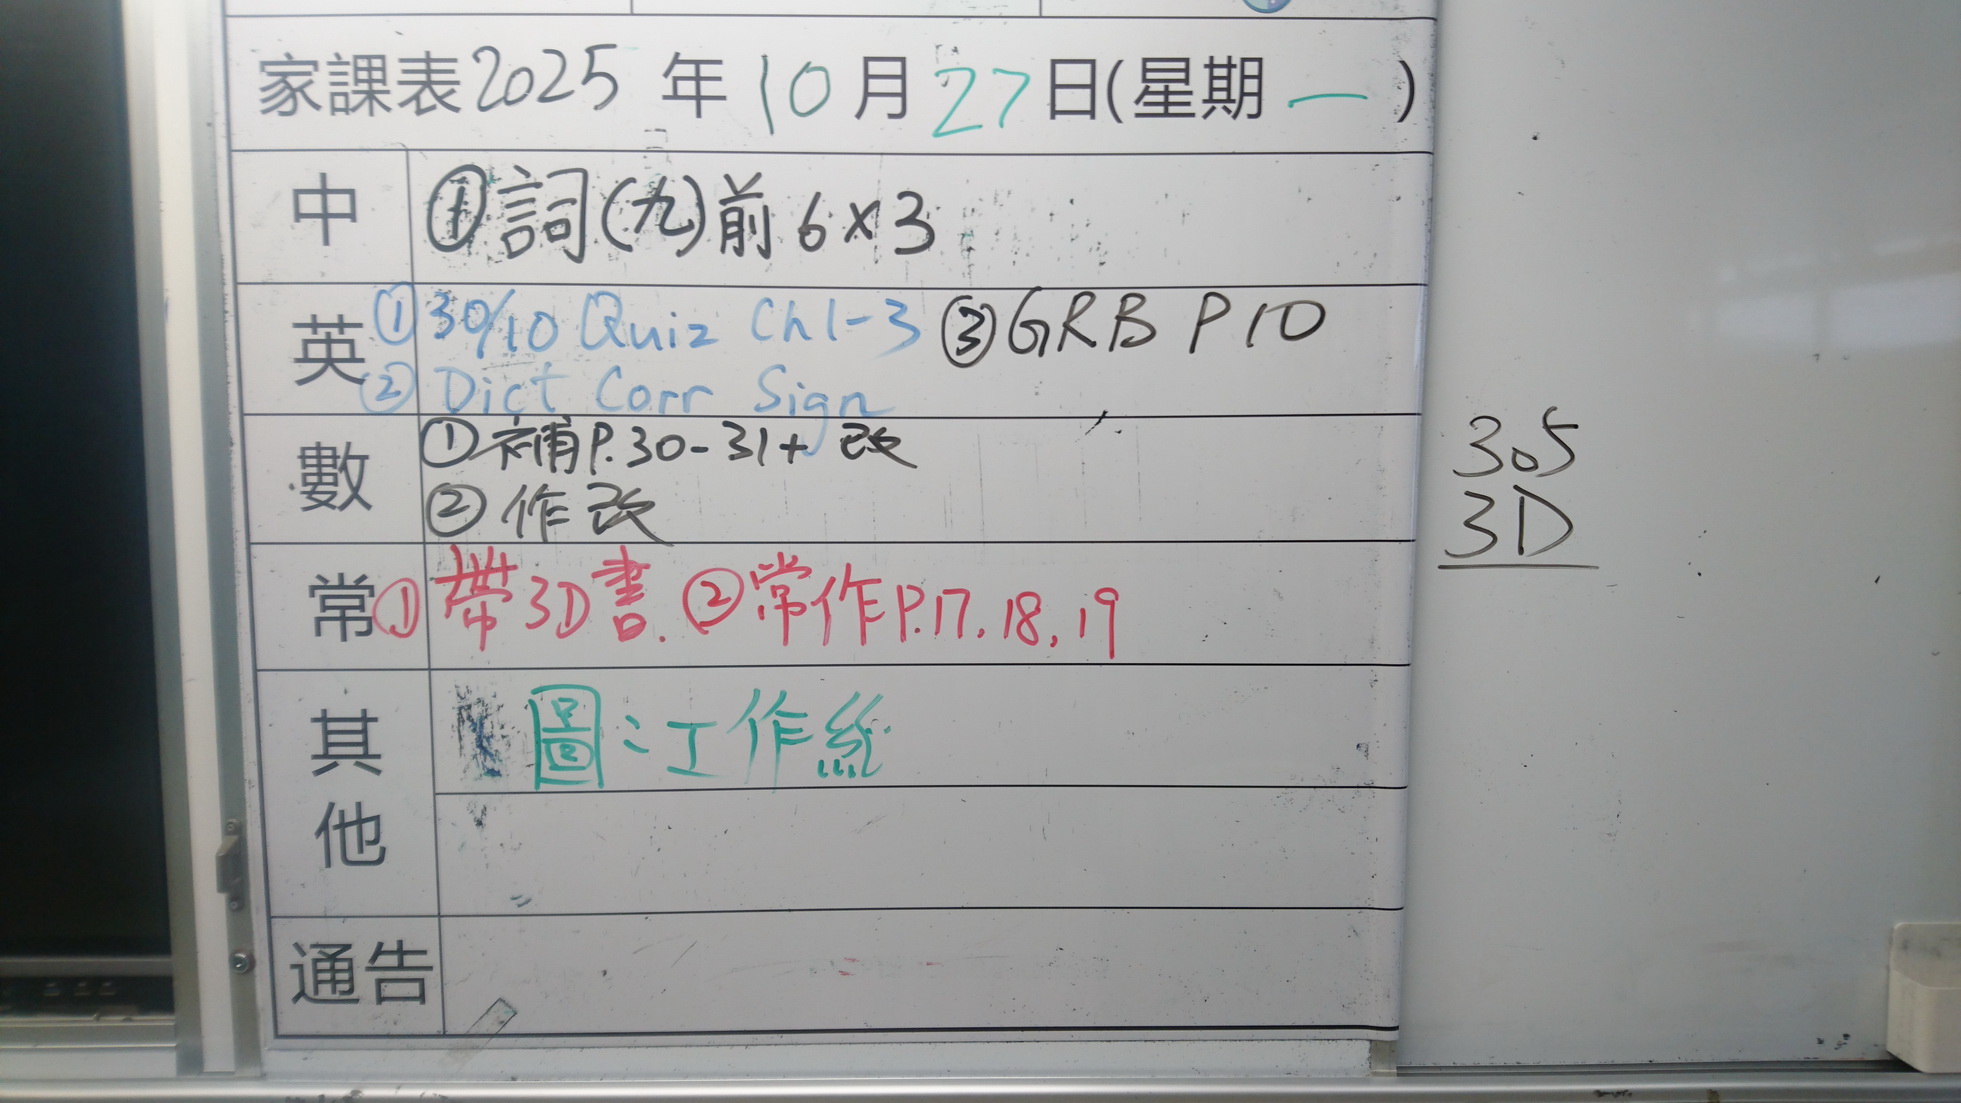 家課表2025年10月27日(星期一)
中 ①詞(九)前6×3
英 ①30/10 Quiz Ch1-3 ③GRB P10
② Dict Corr Sign
數 ①補P.30-31+改
②作改
常 ①帶3D書. ②常作P.17, 18, 19
其他 圖:工作紙
通告
305
3D